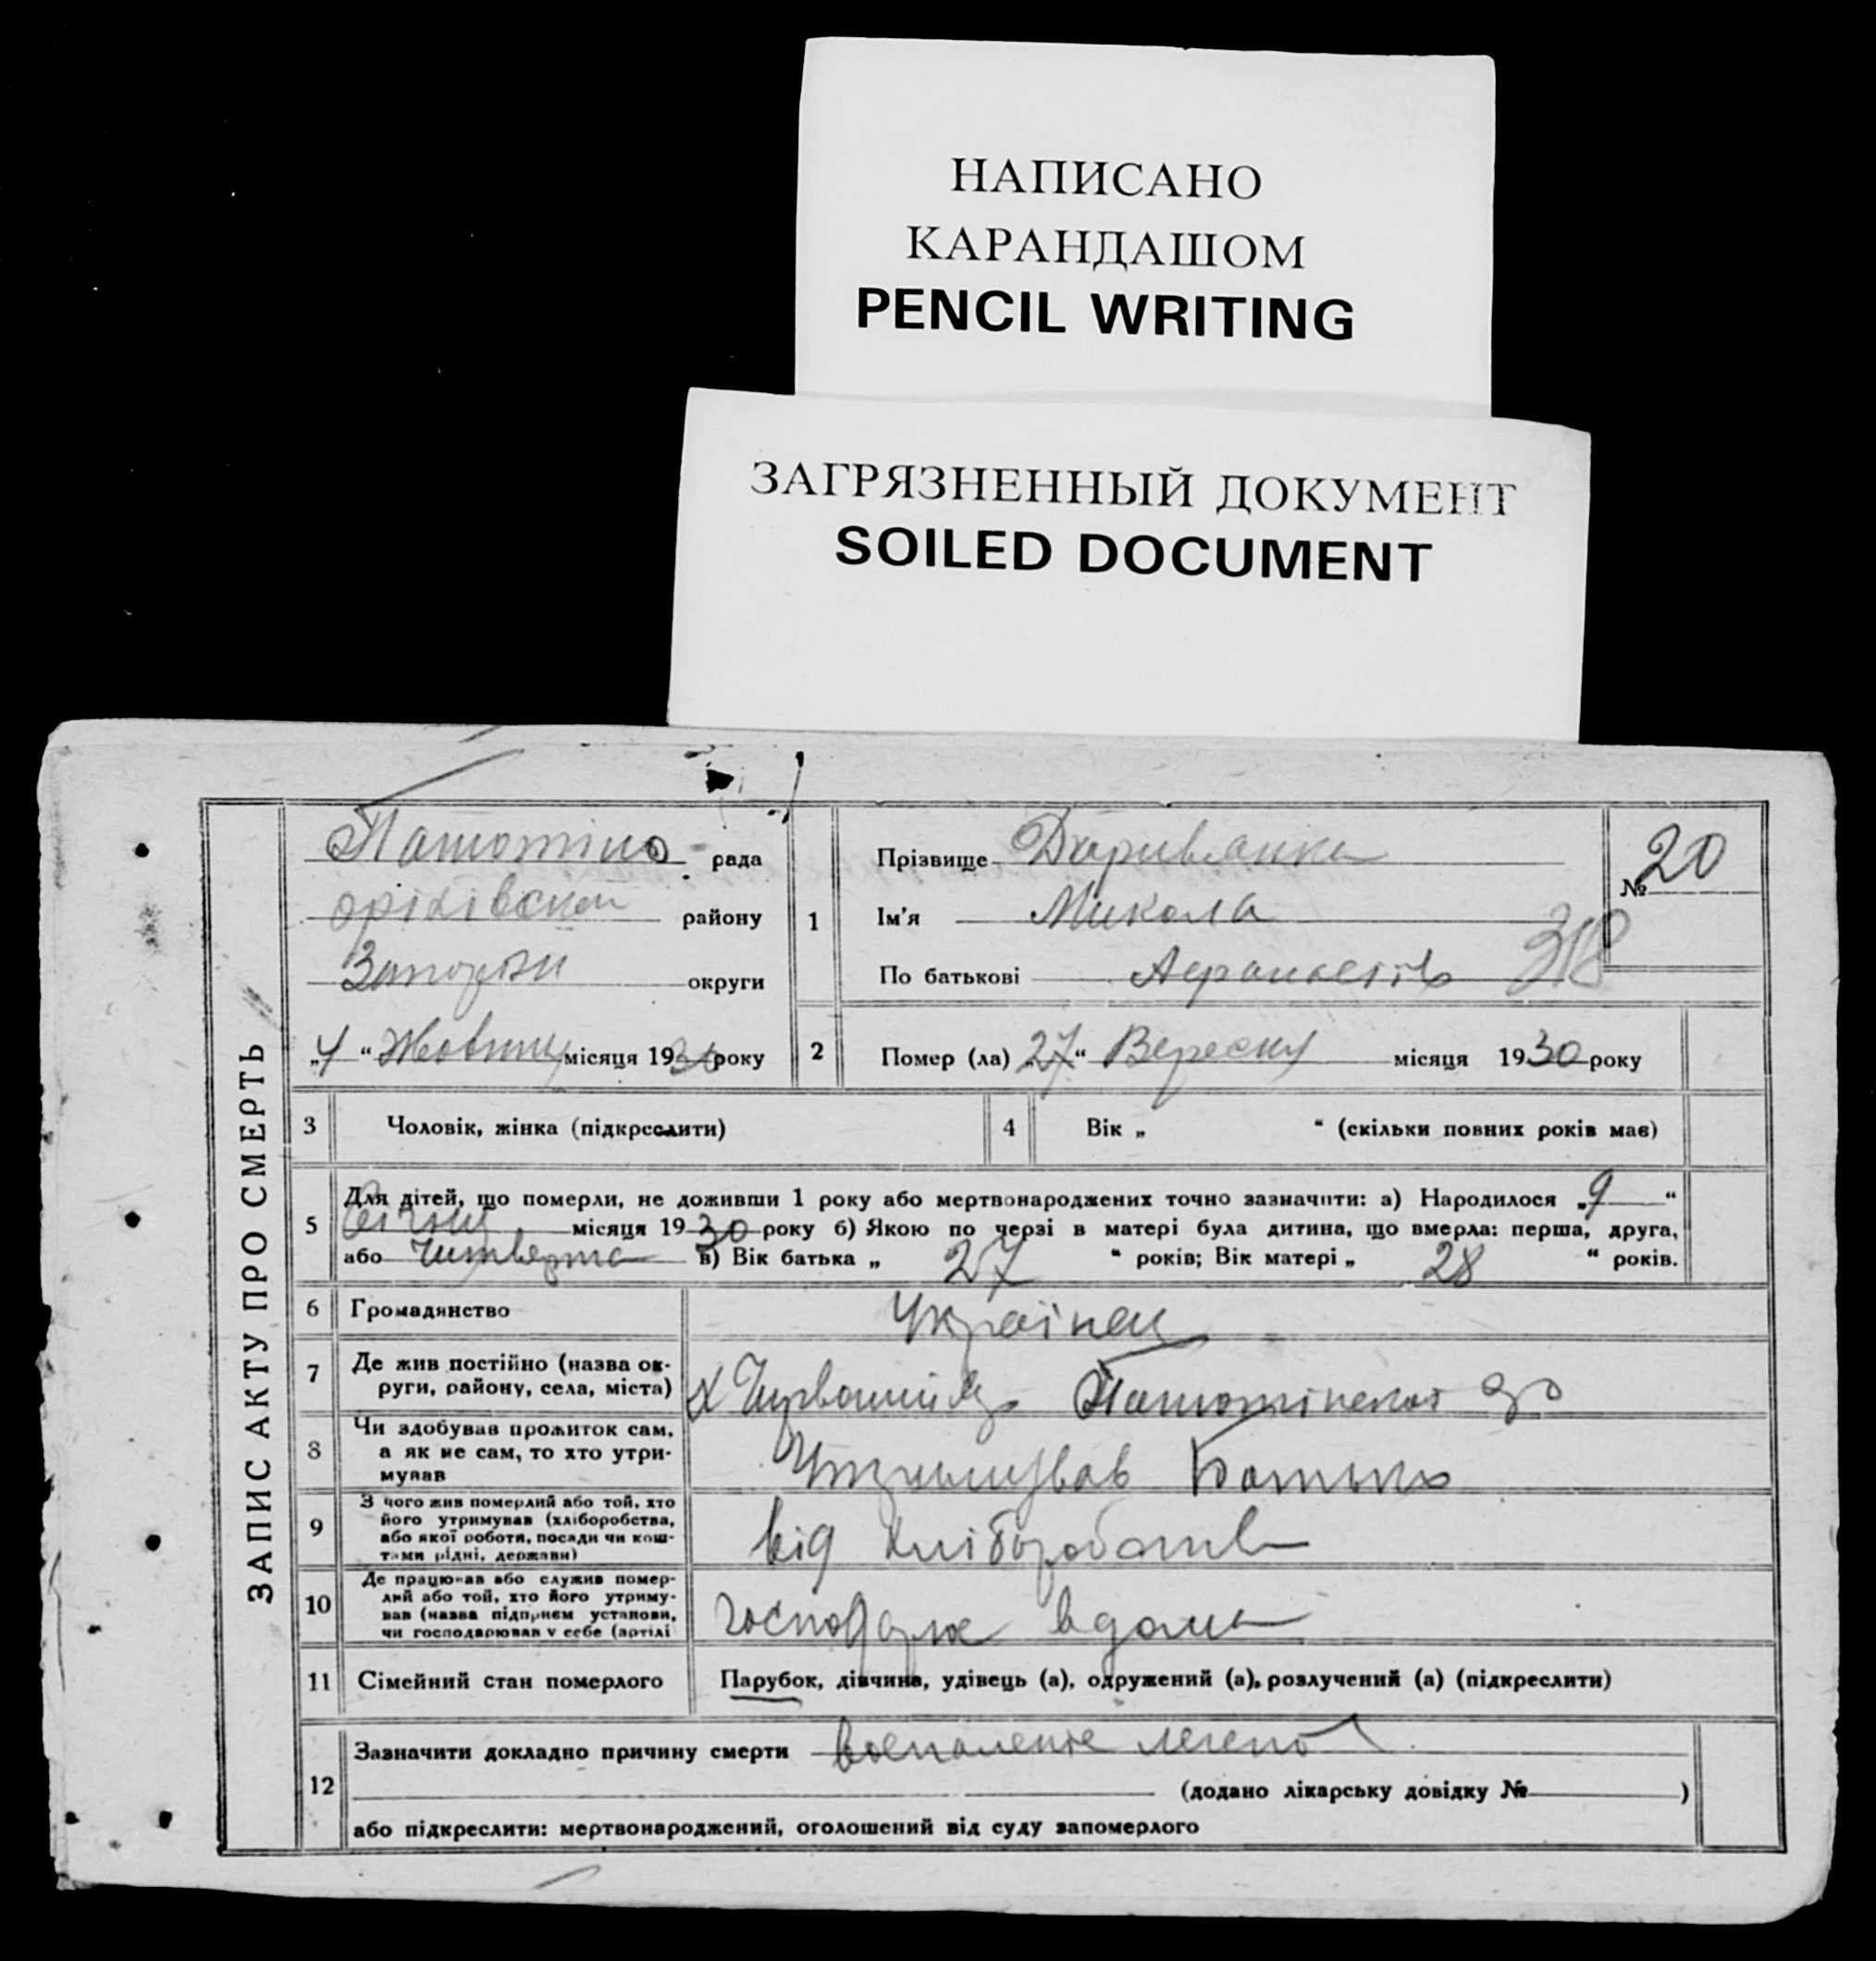 НАПИСАНО
КАРАНДАШОМ
PENCIL WRITING
ЗАГРЯЗНЕННЫЙ ДОКУМЕНТ
SOILED DOCUMENT
ЗАПИС АКТУ ПРО СМЕРТЬ
рада
району
округи
„4“ Жовтня місяця 1930 року
1
Прізвище
Ім'я Микола
По батькові
№ 20
318
2
Помер (ла) „27“ Вересня місяця 1930 року
3 Чоловік, жінка (підкреслити)
4 Вік „ “ (скільки повних років має)
5 Для дітей, що померли, не доживши 1 року або мертвонароджених точно зазначити: а) Народилося „9“
Січня місяця 1930 року б) Якою по черзі в матері була дитина, що вмерла: перша, друга,
або Читверта в) Вік батька „27“ років; Вік матері „28“ років.
6 Громадянство Українец
7 Де жив постійно (назва ок-
руги, району, села, міста)
8 Чи здобував прожиток сам,
а як не сам, то хто утри-
мував
Утримував Батько
9 З чого жив померлий або той, хто
його утримував (хліборобства,
або якої роботи, посади чи кош-
тами рідні, держави)
від хліборобства
10 Де працював або служив помер-
лий або той, хто його утриму-
вав (назва підприєм установи,
чи господарював у себе (артілі
господарює вдома
11 Сімейний стан померлого Парубок, дівчина, удівець (а), одружений (а), розлучений (а) (підкреслити)
12 Зазначити докладно причину смерти воспаленіе легень
(додано лікарську довідку № )
або підкреслити: мертвонароджений, оголошений від суду запомерлого